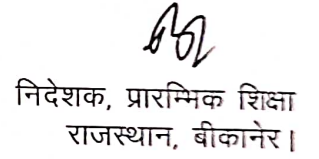 निदेशक, प्रारम्भिक शिक्षा
राजस्थान, बीकानेर।